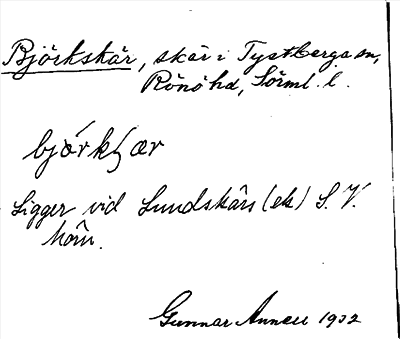 Björkskär, skär i Tystberga sn,
Rönö hd, Sörml. l.
bjǫ́rkʃær
Ligger vid Lundskärs (ek) S.V.
hörn.
Gunnar Annell 1932